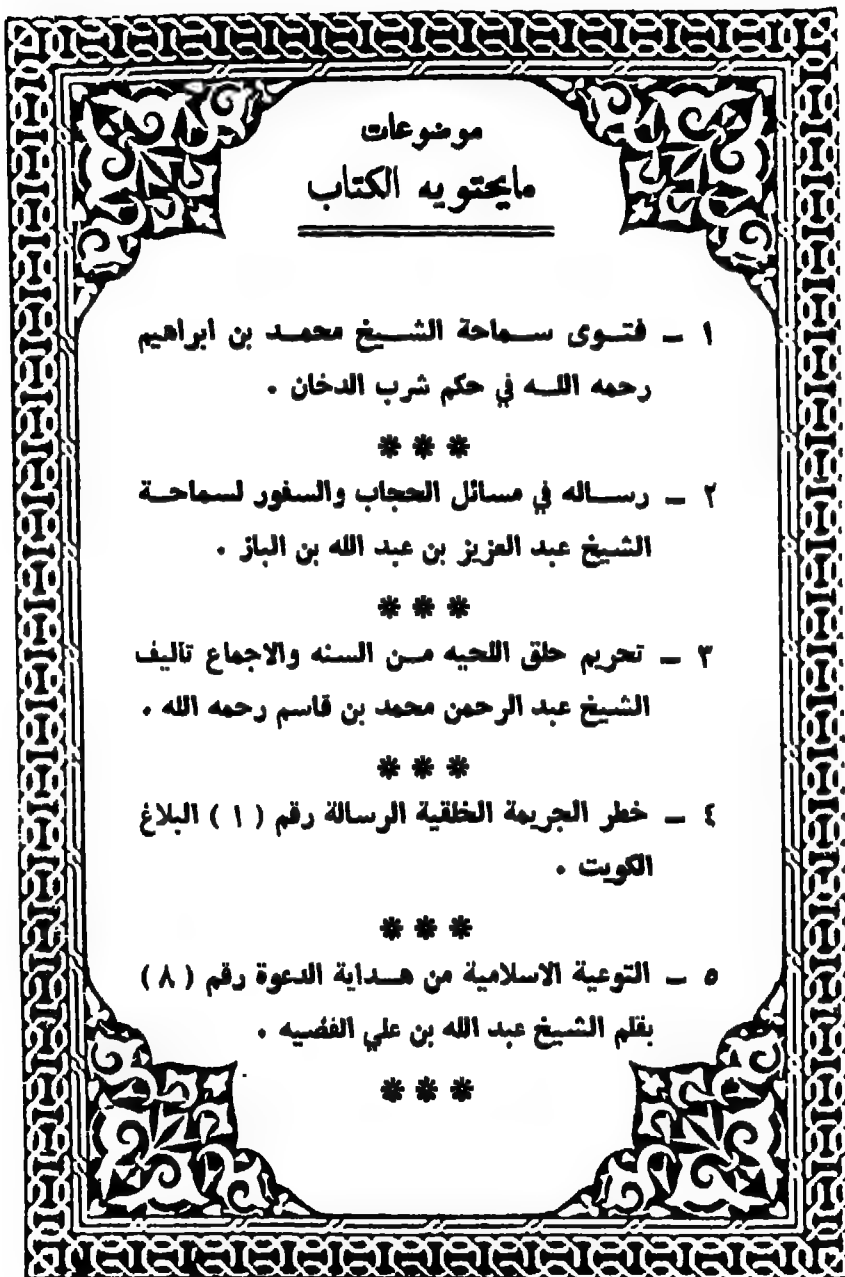 موضوعات
مايحتويه الكتاب
١ ــ فتــوى ســماحة الشــيخ محمــد بن ابراهيم
رحمه اللــه في حكم شرب الدخان .
*** 
٢ ــ رســاله في مسائل الحجاب والسفور لسماحــة
الشيخ عبد العزيز بن عبد الله بن الباز .
***
٣ ــ تحريم حلق اللحيه مــن السنه والاجماع تاليف
الشيخ عبد الرحمن محمد بن قاسم رحمه الله .
***
٤ ــ خطر الجريمة الخلقية الرسالة رقم ( ١ ) البلاغ
الكويت .
***
٥ ــ التوعية الاسلامية من هــداية الدعوة رقم ( ٨ )
بقلم الشيخ عبد الله بن علي الغضيه .
***